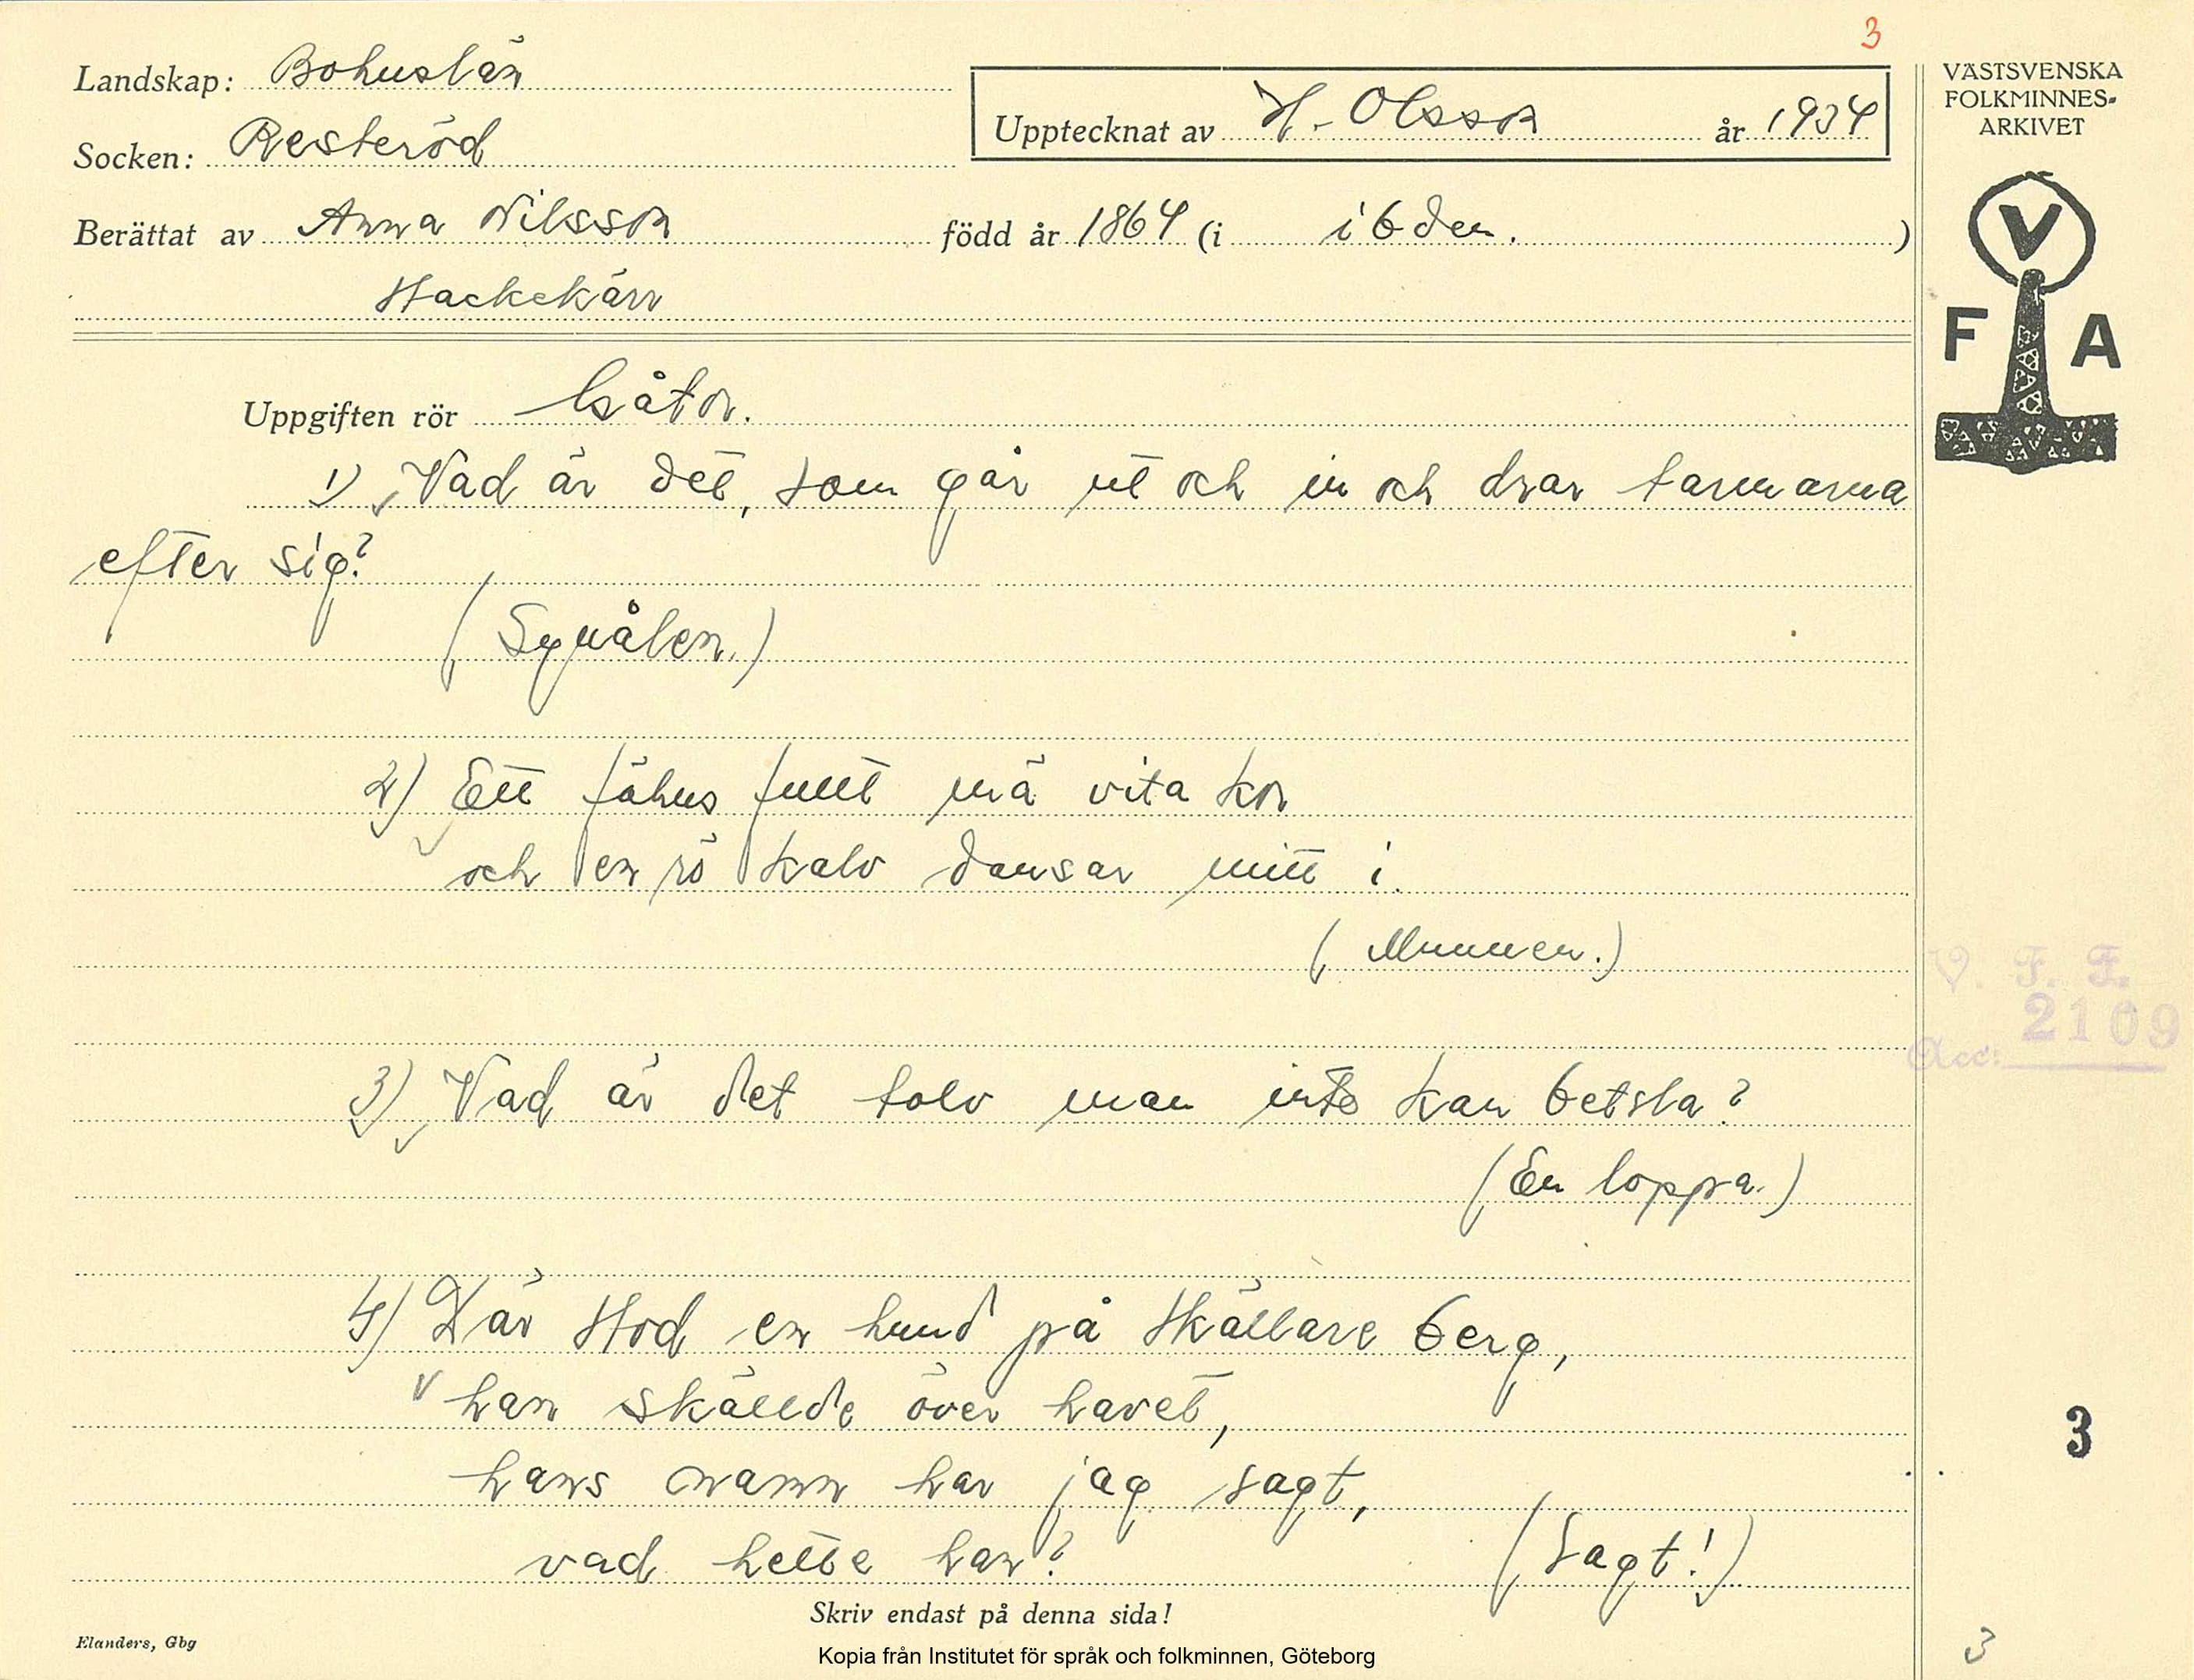 3
Landskap: Bohuslän
Socken: Resteröd
Upptecknat av H. Olsson år 1934
Berättat av Anna Nilsson född år 1864 (i ibden.)
Hackekärr
VÄSTSVENSKA
FOLKMINNES-
ARKIVET
V
F A
Uppgiften rör Gåtor.
1) Vad är det, som går ut och in och drar tarmarna
efter sig?
(Synålen.)
2) Ett fähus fullt mä vita kor
och en rö kalv dansar mitt i.
(Munnen.)
V. F. F.
2109
Acc:
3) Vad är det folv man inte kan betsla?
(En loppa.)
4) Där stod en hund på skällare berg,
han skällde över havet,
hans namn har jag sagt,
vad hette han?
(Sagt!)
3
Skriv endast på denna sida!
Elanders, Gbg
Kopia från Institutet för språk och folkminnen, Göteborg
3